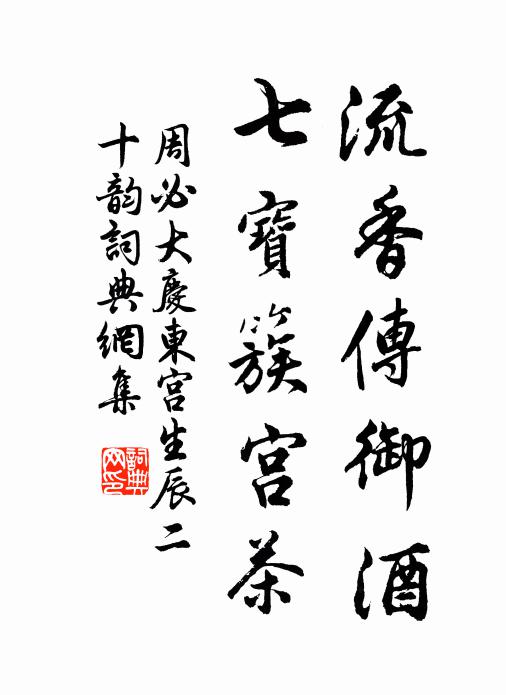 流香傳御酒
七寶簇宮茶
周必大慶東宮生辰二
十韵詞典網集
詞典网印